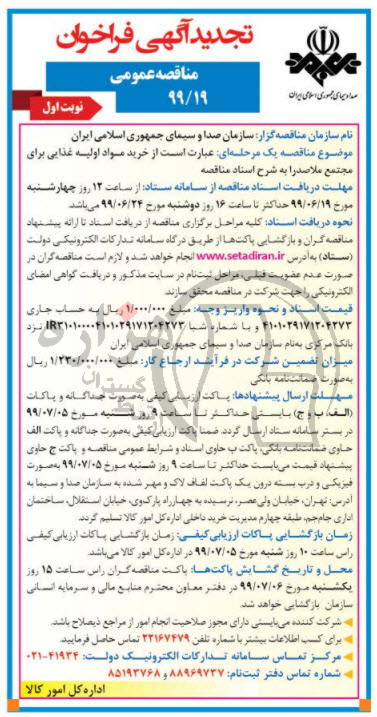 تجدیدآگهی فراخوان
مناقصه عمومی
۹۹/۱۹
نوبت اول
صدا و سیمای جمهوری اسلامی ایران
نام سازمان مناقصه‌گزار: سازمان صدا و سیمای جمهوری اسلامی ایران
موضوع مناقصه یک مرحله‌ای: عبارت است از خرید مواد اولیه غذایی برای
مجتمع ملاصدرا به شرح اسناد مناقصه
مهلت دریافت اسناد مناقصه از سامانه ستاد: از ساعت ۱۲ روز چهارشنبه
مورخ ۹۹/۰۶/۱۹ حداکثر تا ساعت ۱۶ روز دوشنبه مورخ ۹۹/۰۶/۲۴ می‌باشد.
نحوه دریافت اسناد: کلیه مراحل برگزاری مناقصه از دریافت اسناد تا ارائه پیشنهاد
مناقصه‌گران و بازگشایی پاکت‌ها از طریق درگاه سامانه تدارکات الکترونیکی دولت
(ستاد) به‌آدرس www.setadiran.ir انجام خواهد شد و لازم است مناقصه‌گران در
صورت عدم عضویت قبلی، مراحل ثبت‌نام در سایت مذکور و دریافت گواهی امضای
الکترونیکی را جهت شرکت در مناقصه محقق سازند.
قیمت اسناد و نحوه واریز وجه: مبلغ ۱/۰۰۰/۰۰۰ ریال به حساب جاری
۴۱۰۱۰۲۹۱۷۱۲۰۴۲۷۳ و با شماره شبا IR۳۱۰۱۰۰۰۰۴۱۰۱۰۲۹۱۷۱۲۰۴۲۷۳ نزد
بانک مرکزی به‌نام سازمان صدا و سیمای جمهوری اسلامی ایران
میزان تضمین شرکت در فرآیند ارجاع کار: مبلغ ۱/۲۳۰/۰۰۰/۰۰۰ ریال
به‌صورت ضمانت‌نامه بانکی
مهلت ارسال پیشنهادها: پاکت ارزیابی کیفی به‌صورت جداگانه و پاکات
(الف، ب و ج) بایستی حداکثر تا ساعت ۹ روز شنبه مورخ ۹۹/۰۷/۰۵
در بستر سامانه ستاد ارسال گردد. ضمنا پاکت ارزیابی کیفی به‌صورت جداگانه و پاکت الف
حاوی ضمانت‌نامه بانکی، پاکت ب حاوی اسناد و شرایط عمومی مناقصه و پاکت ج حاوی
پیشنهاد قیمت می‌بایست حداکثر تا ساعت ۹ روز شنبه مورخ ۹۹/۰۷/۰۵ به‌صورت
فیزیکی و درب بسته درون یک پاکت لفاف لاک و مهر شده به سازمان صدا و سیما به
آدرس: تهران، خیابان ولی‌عصر، نرسیده به چهارراه پارک‌وی، خیابان استقلال، ساختمان
اداری جام‌جم، طبقه چهارم مدیریت خرید داخلی اداره کل امور کالا تسلیم گردد.
زمان بازگشایی پاکات ارزیابی کیفی: زمان بازگشایی پاکات ارزیابی کیفی
راس ساعت ۱۰ روز شنبه مورخ ۹۹/۰۷/۰۵ در اداره کل امور کالا می‌باشد.
محل و تاریخ گشایش پاکت‌ها: پاکت مناقصه‌گران راس ساعت ۱۵ روز
یکشنبه مورخ ۹۹/۰۷/۰۶ در دفتر معاون محترم منابع مالی و سرمایه انسانی
سازمان بازگشایی خواهد شد.
شرکت کننده می‌بایستی دارای مجوز صلاحیت انجام امور از مراجع ذیصلاح باشد.
برای کسب اطلاعات بیشتر با شماره تلفن ۲۲۱۶۷۴۷۹ تماس حاصل فرمایید.
مرکز تماس سامانه تدارکات الکترونیک دولت: ۴۱۹۳۴-۰۲۱
شماره تماس دفتر ثبت‌نام: ۸۸۹۶۹۷۳۷ و ۸۵۱۹۳۷۶۸
اداره کل امور کالا